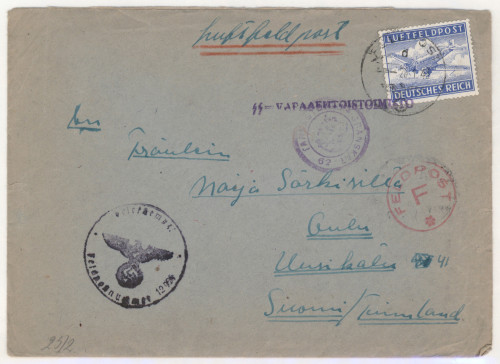 Luftfeldpost
LUFTFELDPOST
DEUTSCHES REICH
SS-VAPAAEHTOISTOIMISTO
67
FELDPOST
F
An
Fräulein
Naija Särkisilla
Oulu
Uusikatu 41
Suomi/Finnland.
Briefstempel
Feldpostnummer
25/2